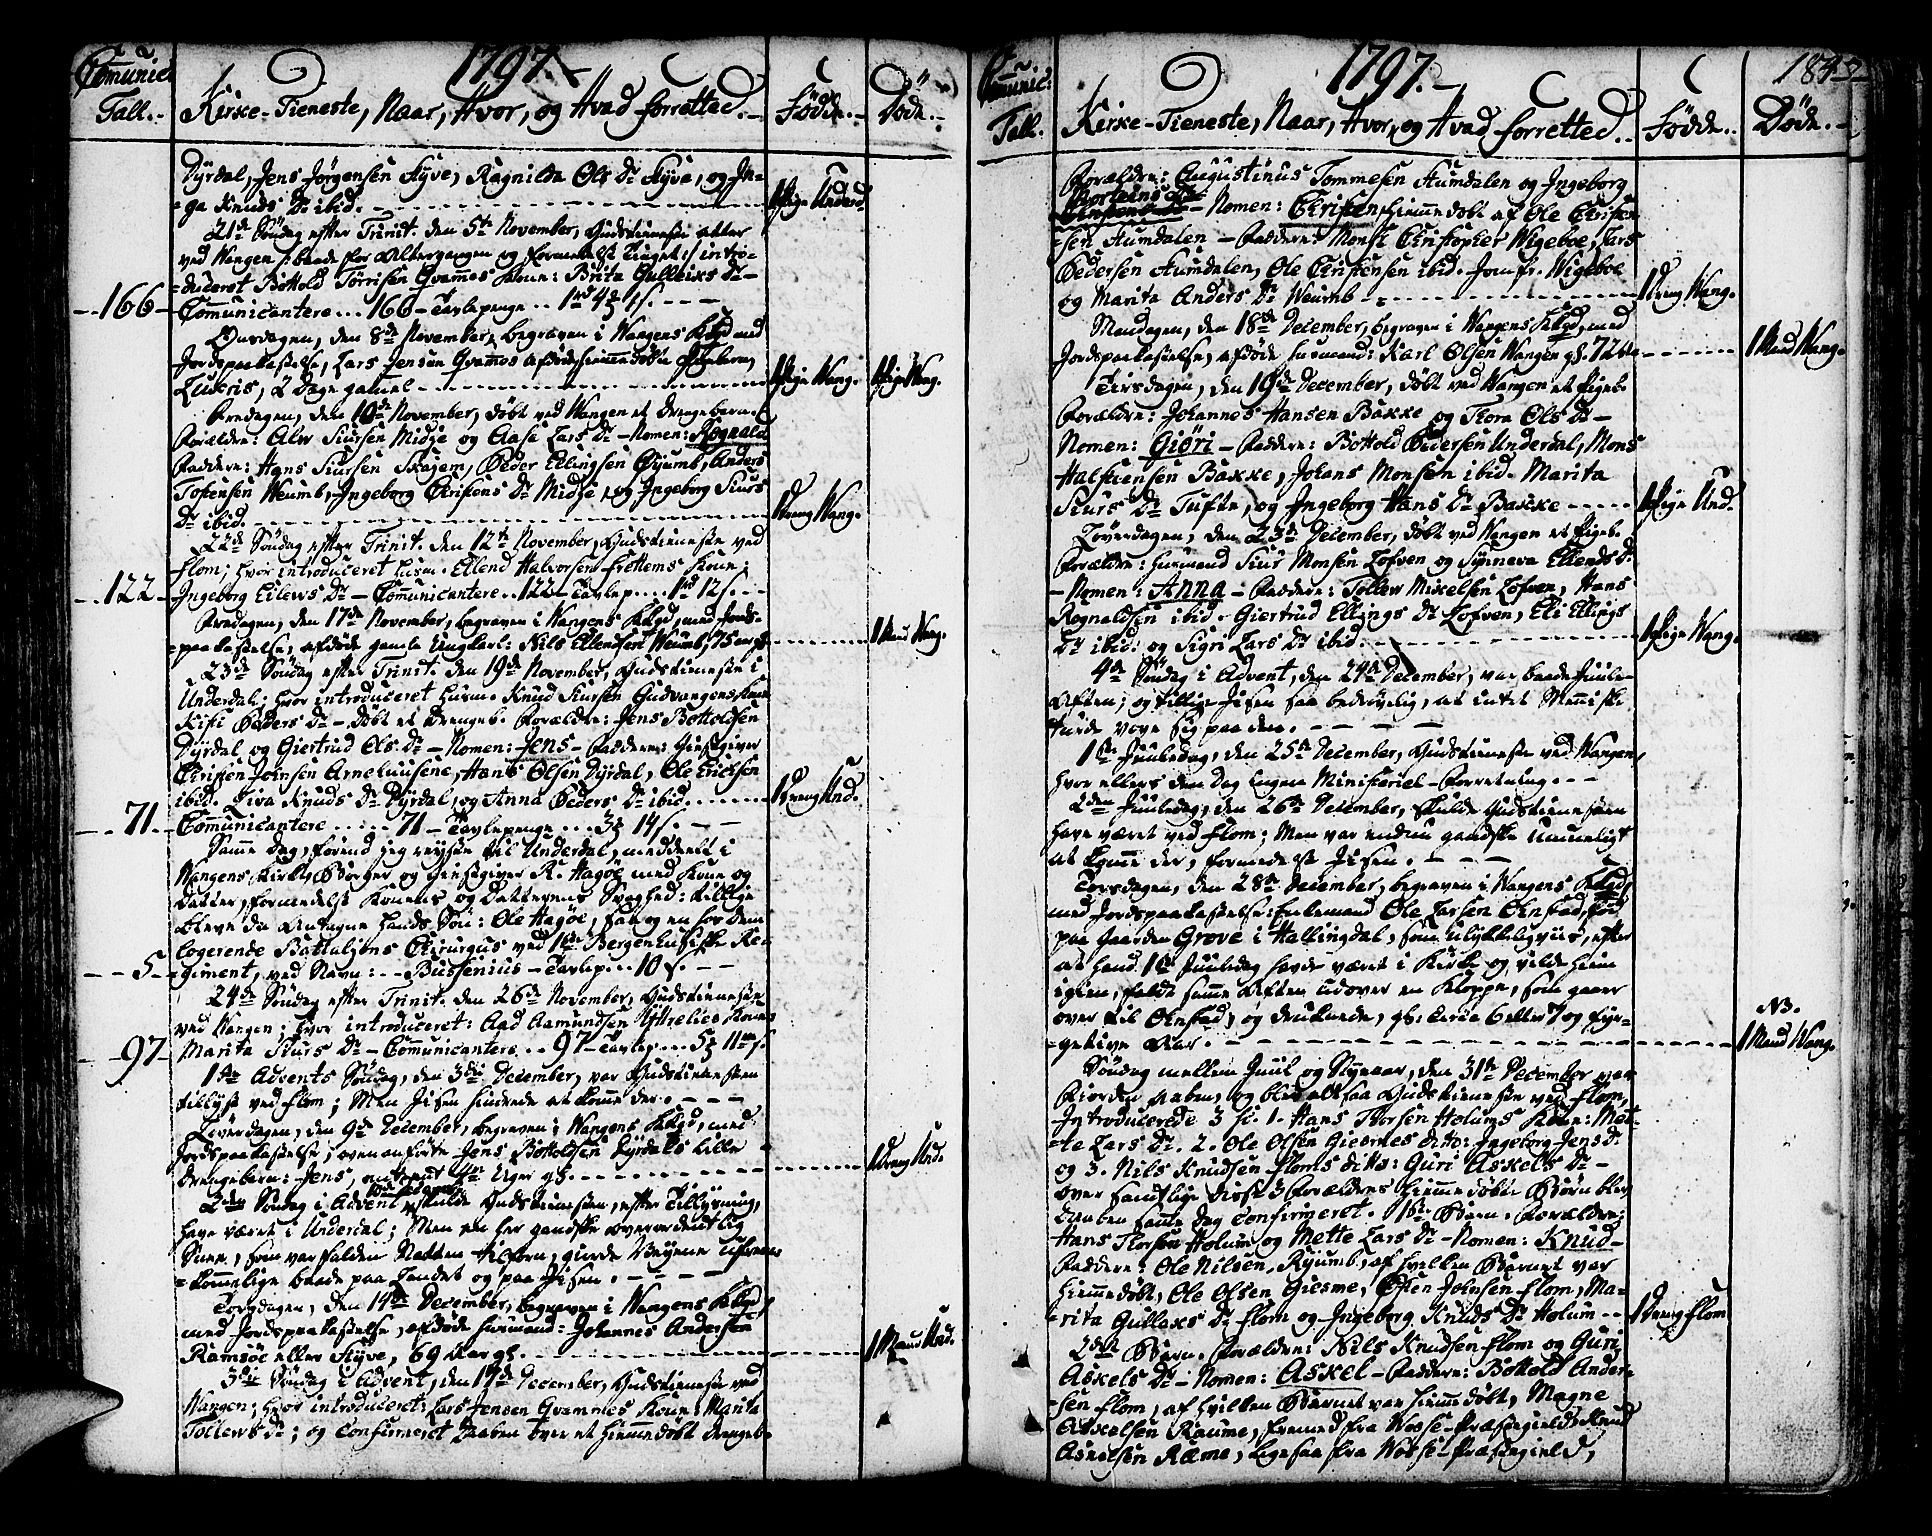 Comunic:
Tall.-
1797.-
Kirke-Tieneste, Naar, Hvor, og Hvad forretted.-
Födde.-
Döde.-
Dyrdal, Jens Jörgensen Styve, Ragnilda Ols Dr Styve, og In-
=ga Knuds Dr ibid.
1 Pige Underd.
21de Söndag efter Trinit. den 5te November, Gudstieneste atter
ved Wangen
duceret Bottold Törrisen Gvammes Kone: Brita Gulleiks Dr-
--166- Comunicantere... 166- Tavlepenge.. 1rd 4ß 1s.
Onsdagen, den 8de November, begraven i Wangens Kkgd med
Jordspaakastelse, Lars Jensen Gvammes hiemmedöbte Pigebarn,
Lukris, 2 Dage gammel
1 Pige Wang. 1 Pige Wang.
Fredagen, den 10de November, döbt ved Wangen et Drengebarn.
Forældre: Alw Siursen Midje og Aase Lars Dr- Nomen: Rognald
Faddere: Hans Siursen Skagem, Peder Ellingsen Ryumb, Anders
Tostensen Weumb, Ingeborg Christens Dr Midje, og Ingeborg Siurs
Dr ibid.
1 Dreng Wang.
22de Söndag efter Trinit. den 12te November, Gudstieneste ved
Flom; hvor introduceret husm. Ellend Halvorsen Frettems Kone;
--122- Ingeborg Eilews Dr- Comunicantere.. 122- Tavlep.... 1rd 12s.
Fredagen, den 17de November, begraven i Wangens Kkgd, med Jords-
=paakastelse, afdöde gamle Ungkarl: Nils Ellendsen Weumb, 75 aar gl.
1 Mand Wang.
23de Söndag efter Trinit. den 19de November, Gudstieneste i
Underdal; hvor introduceret husm. Knud Siursen Gudvangens Kone
Kisti Peders Dr- döbt et Drengeb. Forældre: Jens Bottoldsen
Dyrdal og Giertrud Ols Dr- Nomen: Jens- Faddere: Giestgiver
Christen Jensen Arneluusene, Hans Olsen Dyrdal, Ole Ericksen
ibid. Siva Knuds Dr Dyrdal, og Anna Peders Dr ibid.
1 Dreng Und.
--71- Comunicantere..... 71- Tavlepenge... 3ß 14s.
Samme Dag, forend jeg reyste til Underdal, meddeelt i
Wangens Kirke, Borger og Giestgiver R. Hagöe med Kone og
Datter, formedelst Konens og Datterens Svaghed: tillige
bleve da Andtagne hands Sön: Ole Hagöe, saa og en for dem
logerende Battaljons Chirurgus ved 1ste Bergenhusiske Re-
--5- =giment, ved Navn:- Bussenius- Tavlep... 10s.
24de Söndag efter Trinit. den 26de November, Gudstieneste
ved Wangen; hvor introduceret: Aad Aamundsen Kones
--97- Marita Siurs Dr- Comunicantere.. 97- Tavlep... 5ß 11s.
1ste Advents Söndag, den 3die December, var Gudstienesten
tillyst ved Flom; Men Jisen hindrede at komme der.
Löverdagen, den 9de December, begraven i Wangens Kkgd, med
Jordspaakastelse, ovenanförte Jens Bottoldsen Dyrdals lille
Drengebarn: Jens, Uger gl.
1 Dreng Und.
2den Söndag i Advent skulde Gudstienesten, efter Tillysning,
have været i Underdal; Men en her gandske overordentlig
Snee, som var falden Natten tilforn, giorde Veyene
=kommelige baade paa Landet og paa Jisen.
Torsdagen, den 14de December, begraven i Wangens Kkgd,
med Jordspaakastelse, afdöde husmand: Johannes Andersen
Ramsöe eller Styve, 69 Aar gl.
1 Mand Und.
3die Söndag i Advent, den 17de December, Gudstieneste ved
Wangen; hvor introduceret: Lars Jensen Gvammes Kone: Marita
Tollews Dr; og Confirmeret Daaben over et hiemmedöbt Drengeb.
Comunic:
Tall.
1797.-
184
Kirke-Tieneste, Naar, Hvor, og Hvad forretted.-
Födde.-
Döde.-
Forældre: Augustinus Tommesen Humdalen og Ingeborg
Mortens Dr
- Nomen: Christen, hiemmedöbt af Ole Christen-
=sen Humdalen- Faddere: Monsr Christopher Wigeboe, Lars
Pedersen Humdalen, Ole Christensen ibid. Jomfr. Wigeboe
og Marita Anders Dr Weumb
1 Dreng Wang.
Mandagen, den 18de December, begraven i Wangens Kkgd, med
Jordspaakastelse, afdöde husmand: Karl Olsen Wangen gl. 72
1 Mand Wang.
Tirsdagen, den 19de December, döbt ved Wangen et Pigeb.
Forældre: Johannes Hansen Bakke og Thora Ols Dr-
Nomen: Giöri- Faddere: Bottold Pedersen Underdal, Mons
Halsteensen Bakke, Johans Monsen ibid. Marita
Siurs Dr Tufte, og Ingeborg Hans Dr Bakke
1 Pige Und.
Löverdagen, den 23de December, döbt ved Wangen et Pigeb.
Forældre: husmand Siur Monsen Lofven og Synneva Ellends Dr.
- Nomen: Anna- Faddere: Tollew Mikelsen Lofven, Hans
Rognaldsen ibid. Giertrud Ellings Dr Lofven, Eli Ellings
Dr ibid. og Sigri Lars Dr ibid.
1 Pige Wang.
4de Söndag i Advent, den 24de December, var baade Juule-
Aften; og tillige Jisen saa bedrövelig, at intet Menniske
turde vove sig paa den.
1ste Juuledag, den 25de December, Gudstieneste ved Wangen,
hvor ellers den Dag ingen Ministeriel-Forretning.
2den Juuledag, den 26de December, skulde Gudstienesten
have været ved Flom; Men var endnu gandske umueligt
at komme der, formedelst Jisen.
Torsdagen, den 28de December, begraven i Wangens Kkgd,
med Jordspaakastelse: Enkemand Ole Larsen Ohnstad, föd
paa Gaarden Grove i Hallingdal, som ulykkeligviis, efter
at hand 1ste Juuledag havde været i Kirke og vilde hiem
igien, faldt samme Aften udover en Kloppe, som gaaer
over til Ohnstad, og druknede, gl: circa 6 eller 7 og fyr-
=getive Aar.
NB.
1 Mand Wang.
Söndag mellem Juul og Nyeaar, den 31te December var
Fiorden aaben, og blev altsaa Gudstieneste ved Flom,
Introducerede 3 so: 1. Hans Thorsen Holums Kone: Met-
te Lars Dr. 2. Ole Olsen Giesmes ditto: Ingeborg Jens Dr
og 3. Nils Knudsen Floms ditto: Guri Askels Dr-
over samtlige disse 3 Forældres hiemmedöbte Börn blev
Daaben samme Dag Confirmeret. 1ste Barn. Forældre:
Hans Thorsen Holum og Mette Lars Dr- Nomen: Knud-
Faddere: Ole Nilsen Ryumb, af hvilken Barnet var
hiemmedöbt, Ole Olsen Giesme, Osten Johnsen Flom, Ma-
=rita Gullaks Dr Flom og Ingeborg Knuds Dr Holum
1 Dreng Flom
2det Barn. Forældre: Nils Knudsen Flom og Guri
Askels Dr- Nomen: Askel- Faddere: Bottold Ander-
sen Flom, af hvilken Barnet var hiemmedöbt, Magne
Askelsen Raume, fremed fra Wosse-Præstegield, Knud
Askelsen Ræme, ligesaa fra Wosse-Præstegield,